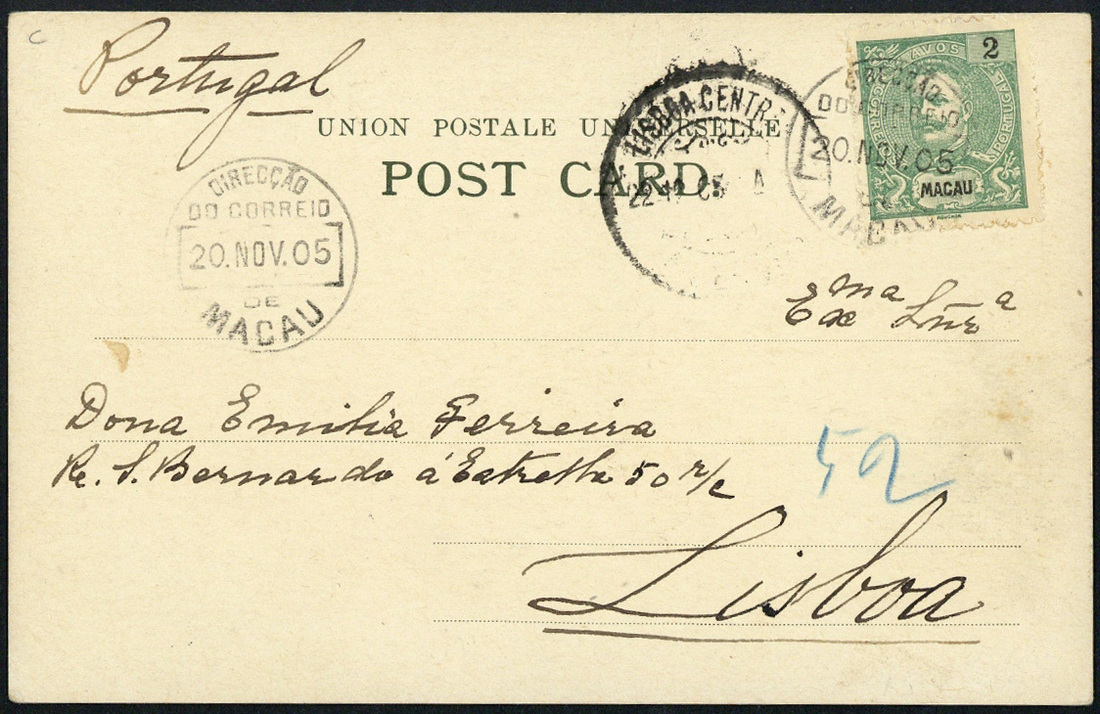 C
Portugal
UNION POSTALE UNIVERSELLE
POST CARD.
DIRECÇÃO
DO CORREIO
20.NOV.05
DE
MACAU
LISBOA.CENTR
22-12 05 A
AVOS
2
CORREIOS
PORTUGAL
MACAU
DIRECÇÃO
DO CORREIO
20.NOV.05
DE
MACAU
Exma Snra
Dona Emilia Ferreira
Re. S. Bernardo á Estrella 50 r/c
52
Lisboa